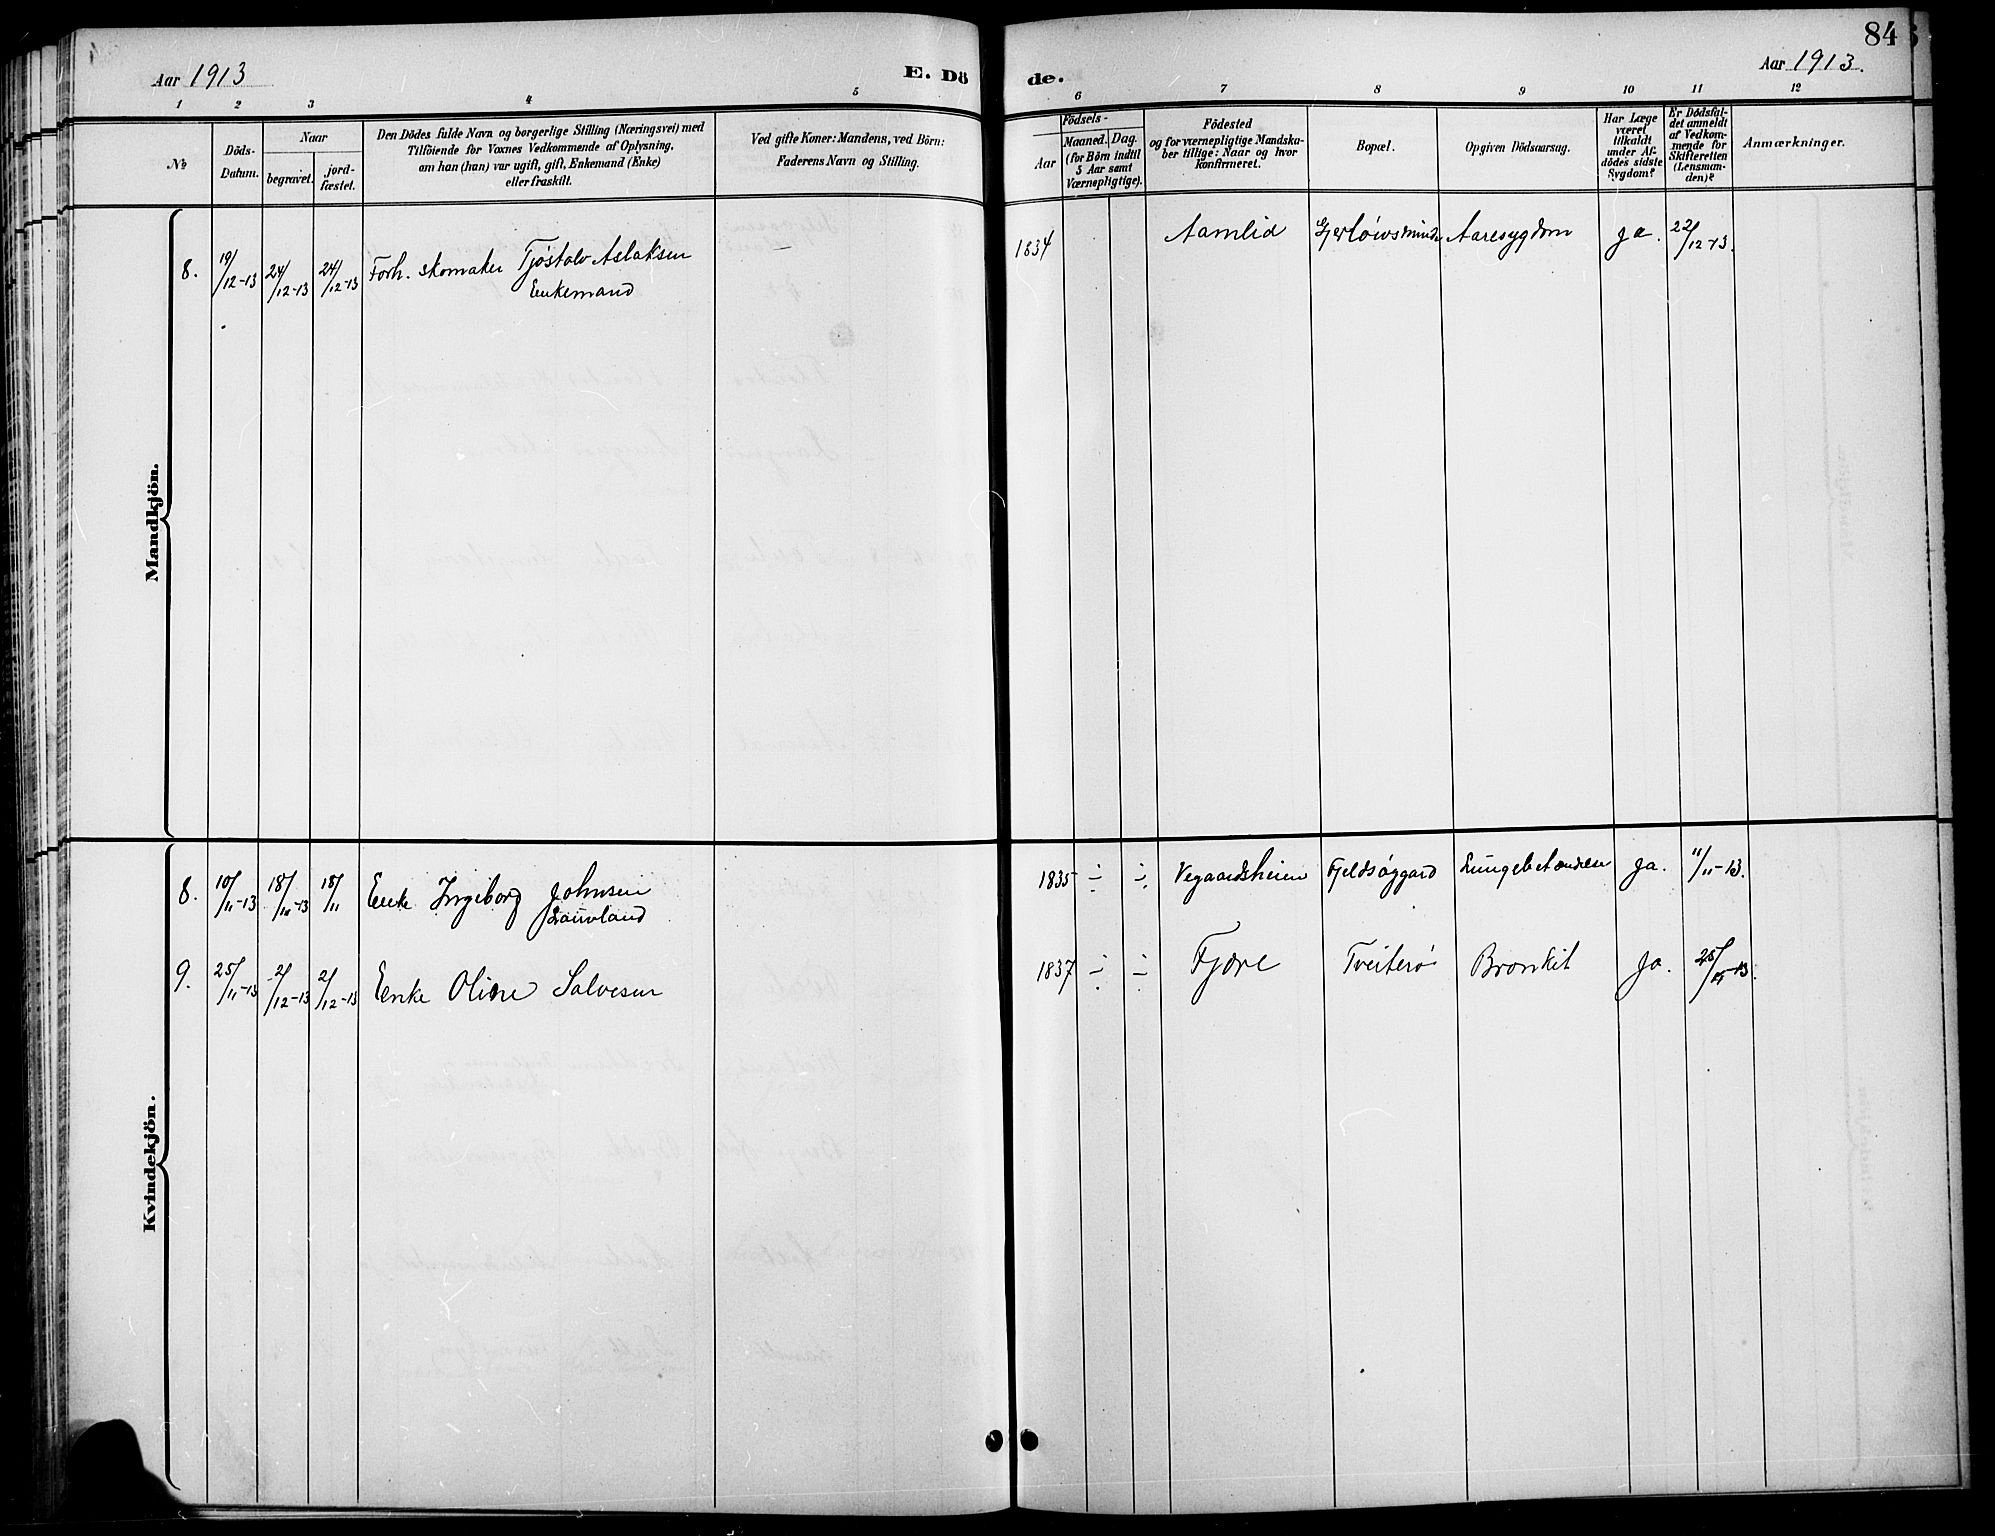 84
Aar 1913
E. Dö
de.
Aar 1913.
1 2 3 4 5 6 7 8 9 10 11 12
No
Döds-
Datum.
Naar
begravet.
jord-
fæstet.
Den Dödes fulde Navn og borgerlige Stilling (Næringsvei) med
Tilföiende for Voxnes Vedkommende af Oplysning,
om han (han) var ugift, gift, Enkemand (Enke)
eller fraskilt.
Ved gifte Koner: Mandens, ved Börn:
Faderens Navn og Stilling.
Födsels-
Aar
Maaned.
Dag.
(for Börn indtil
5 Aar samt
Værnepligtige).
Födested
og for værnepligtige Mandska-
ber tillige: Naar og hvor
konfirmeret.
Bopæl.
Opgiven Dödsaarsag.
Har Læge
været
tilkaldt
under Af-
dödes sidste
Sygdom?
Er Dödsfal-
det anmeldt
af Vedkom-
mende for
Skifteretten
(Lensman-
den)?
Anmærkninger.
Mandkjön.
8. 19/12-13 24/12-13 24/12-13 Forh. skomaker Tjøstolv Aslaksen — 1834 Aamlid Aaresygdom ja. 22/12-13.
Enkemand
Kvindekjön.
8. 10/11-13 18/11-13 18/11 Enke Ingeborg Johnsen 1835 ÷ ÷ Vegaardsheien Fjeldsøggard Lungebetændelse ja. 11/11-13.
Lauvland
9. 25/11-13 2/12-13 2/12-13 Enke Oline Salvesen 1837 ÷ ÷ Fjære Tveiterø Bronkit ja.